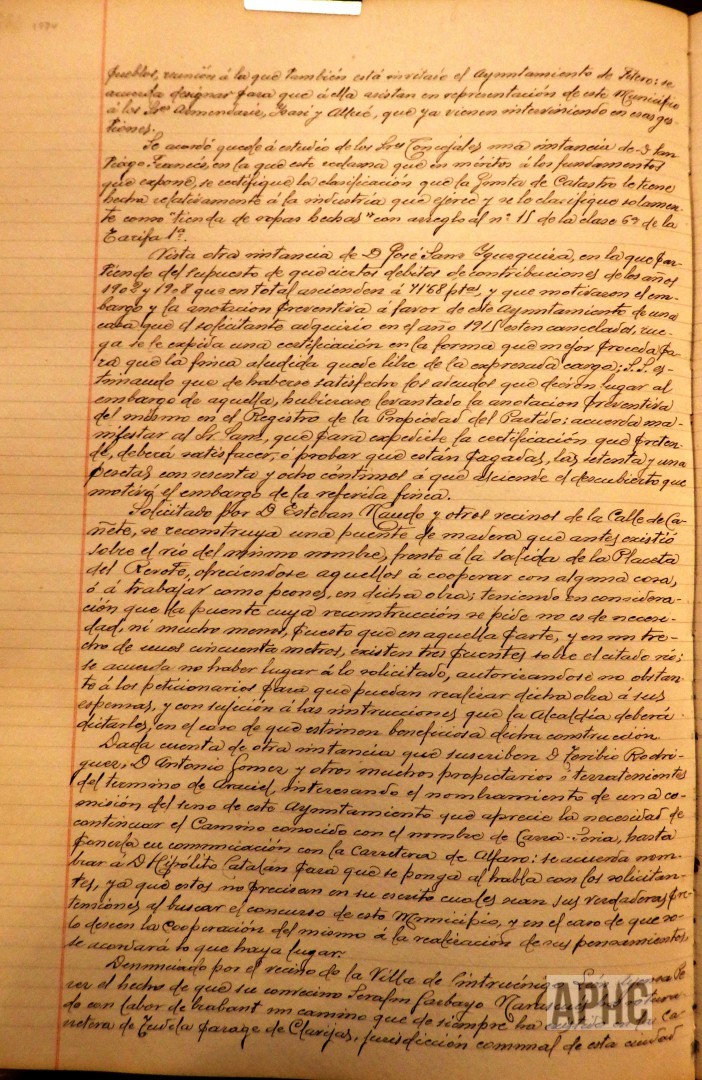 pueblos, reunión á la que también está invitado el Ayuntamiento de Fitero: se
acuerda designar para que á ella asistan en representación de este Municipio
á los Sres Armendáriz, y Alfaro, que ya vienen interviniendo en esas ges-
tiones.
Se acordó quede á estudio de los Sres Concejales una instancia de D San-
tiago Francés, en la que este reclama que en méritos á los fundamentos
que expone, se rectifique la clasificación que la Junta de Catastro le tiene
hecha relativamente á la industria que ejerce y se lo clasifique solamen-
te como "tienda de ropas hechas" con arreglo al nº 15 de la clase 6ª de la
Tarifa 1ª.
Vista otra instancia de D José Sanz en la que par-
tiendo del supuesto de que ciertos debitos de contribuciones de los años
1902 y 1908 que en total ascienden á 71'68 ptas, y que motivaron el em-
bargo y la anotacion preventiva á favor de este Ayuntamiento de una
casa que el solicitante adquirio en el año 1915 esten cancelados, rue-
ga se le expida una certificación en la forma que mejor proceda pa-
ra que la finca aludida quede libre de la expresada carga; S.S. es-
timando que de haberse satisfecho los adeudos que dieron lugar al
embargo de aquella, hubierase levantado la anotacion preventiva
del mismo en el Registro de la Propiedad del Partido: acuerda ma-
nifestar al Sr. Sanz, que para expedirle la certificación que preten-
de, deberá satisfacer, ó probar que están pagadas, las setenta y una
pesetas con sesenta y ocho céntimos á que asciende el descubierto que
motivó el embargo de la referida finca.
Solicitado por D Esteban Naudo y otros vecinos de la Calle de Ca-
ñete, se reconstruya una puente de madera que antes existió
sobre el rio del mismo nombre, frente á la salida de la Placeta
del Rerote, ofreciéndose aquellos á cooperar con alguna cosa,
ó á trabajar como peones, en dicha obra; teniendo en considera-
ción que la puente cuya reconstrucción se pide no es de necesi-
dad, ni mucho menos, puesto que en aquella parte, y en un tre-
cho de unos cincuenta metros, existen tres puentes sobre el citado rio;
se acuerda no haber lugar á lo solicitado, autorizandose no obstan-
te á los peticionarios para que puedan realizar dicha obra á sus
espensas, y con sujeción á las instrucciones que la Alcaldía deberá
dictarles, en el caso de que estimen beneficiosa dicha construcción.
Dada cuenta de otra instancia que suscriben D Toribio Rodri-
guez, D Antonio Gomez y otros muchos propietarios ó terratenientes
del termino de Araciel, interesando el nombramiento de una co-
misión del seno de este Ayuntamiento que aprecie la necesidad de
continuar el Camino conocido con el nombre de Carra-Soria, hasta
ponerla en comunicación con la Carretera de Alfaro: se acuerda nom-
brar á D Hipólito Catalán para que se ponga al habla con los solicitan-
tes, ya que estos no precisan en su escrito cuales sean sus verdaderas pre-
tensiones al buscar el concurso de este Municipio, y en el caso de que so-
lo deseen la cooperación del mismo á la realización de sus pensamientos,
se acordará lo que haya lugar.
Denunciado por el vecino de la Villa de Cintruénigo
el hecho de que su convecino Serafin Garbayo
do con labor de brabant un camino que de siempre ha ca-
rretera de Tudela parage de Clavijas, jurisdicción comunal de esta ciudad
APHC